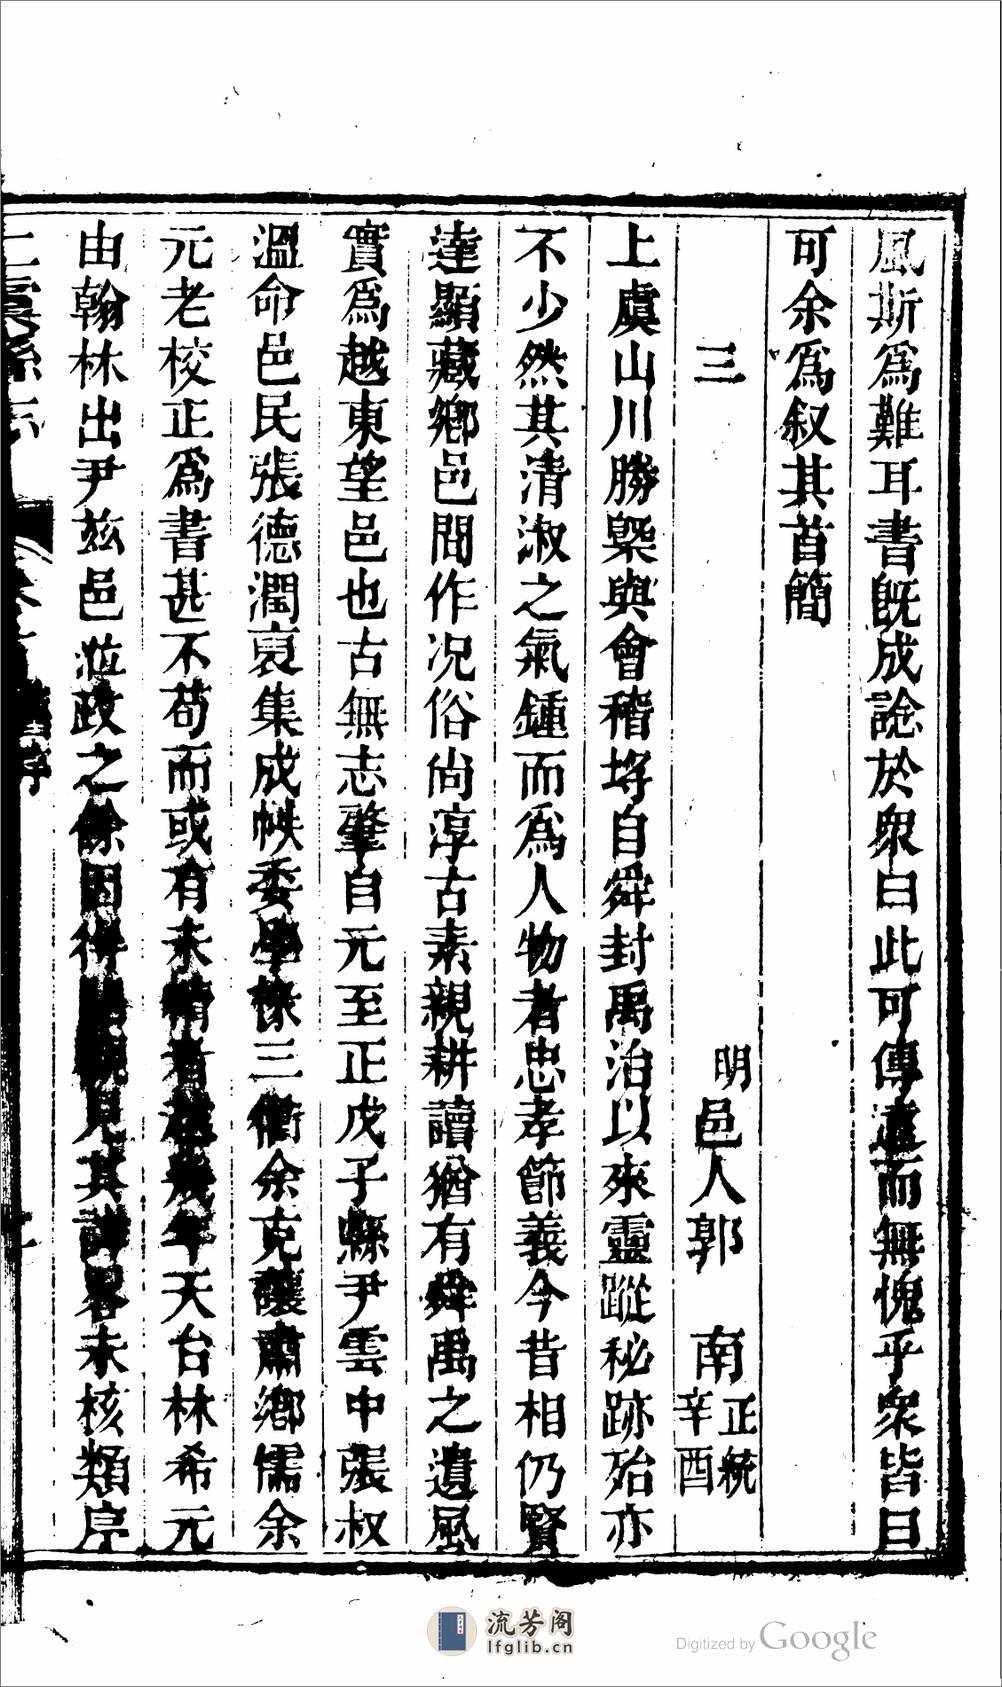 風斯爲難耳書旣成諗於衆曰此可傳遠而無愧乎衆皆曰
可余爲叙其首簡
三 明邑人郭南正統辛酉
上虞山川勝槩與會稽埒自舜封禹治以來靈蹤秘跡殆亦
不少然其清淑之氣鍾而爲人物者忠孝節義今昔相仍賢
達顯藏鄉邑間作况俗尚淳古素親耕讀猶有舜禹之遺風
實爲越東望邑也古無志肇自元至正戊子縣尹雲中張叔
溫命邑民張德潤裒集成帙委學掾三衢余克讓肅鄉儒余
元老校正爲書甚不苟而或有未精者越幾年天台林希元
由翰林出尹兹邑涖政之餘因得見其譁畧未核類序
上虞縣志
舊序
流芳阁
lfglib.cn
Digitized by Google